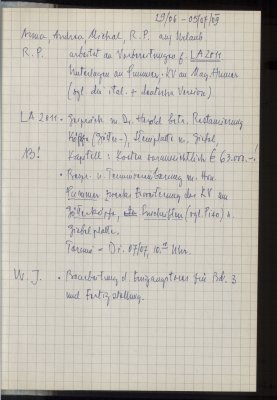 29/06 - 05/07/09
Anna, Andrea, Michal, R.P. auf Urlaub
R.P. arbeitet an Vorbereitungen f. LA 2011
Unterlagen an Summer. KV an Mag. Humer
(vgl. die ital. + deutsche Version)
LA 2011 • Gespräch m. Dr. Harold betr. Restaurierung
Köpfe (Götter-), Stempel u. Giebel,
NB! Kapitell: Kosten voraussichtlich € 63.000.-!
• Bespr. u. Terminvereinbarung m. Hrn.
Summer zwecks Erweiterung des KV um
Götterköpfe, Inschriften (vgl. Piso) u.
Giebelplatte.
Termin = Di. 07/07, 10.00 Uhr.
W. J. • Bearbeitung d. Eingangstores für Bd. 3
und Fertigstellung.